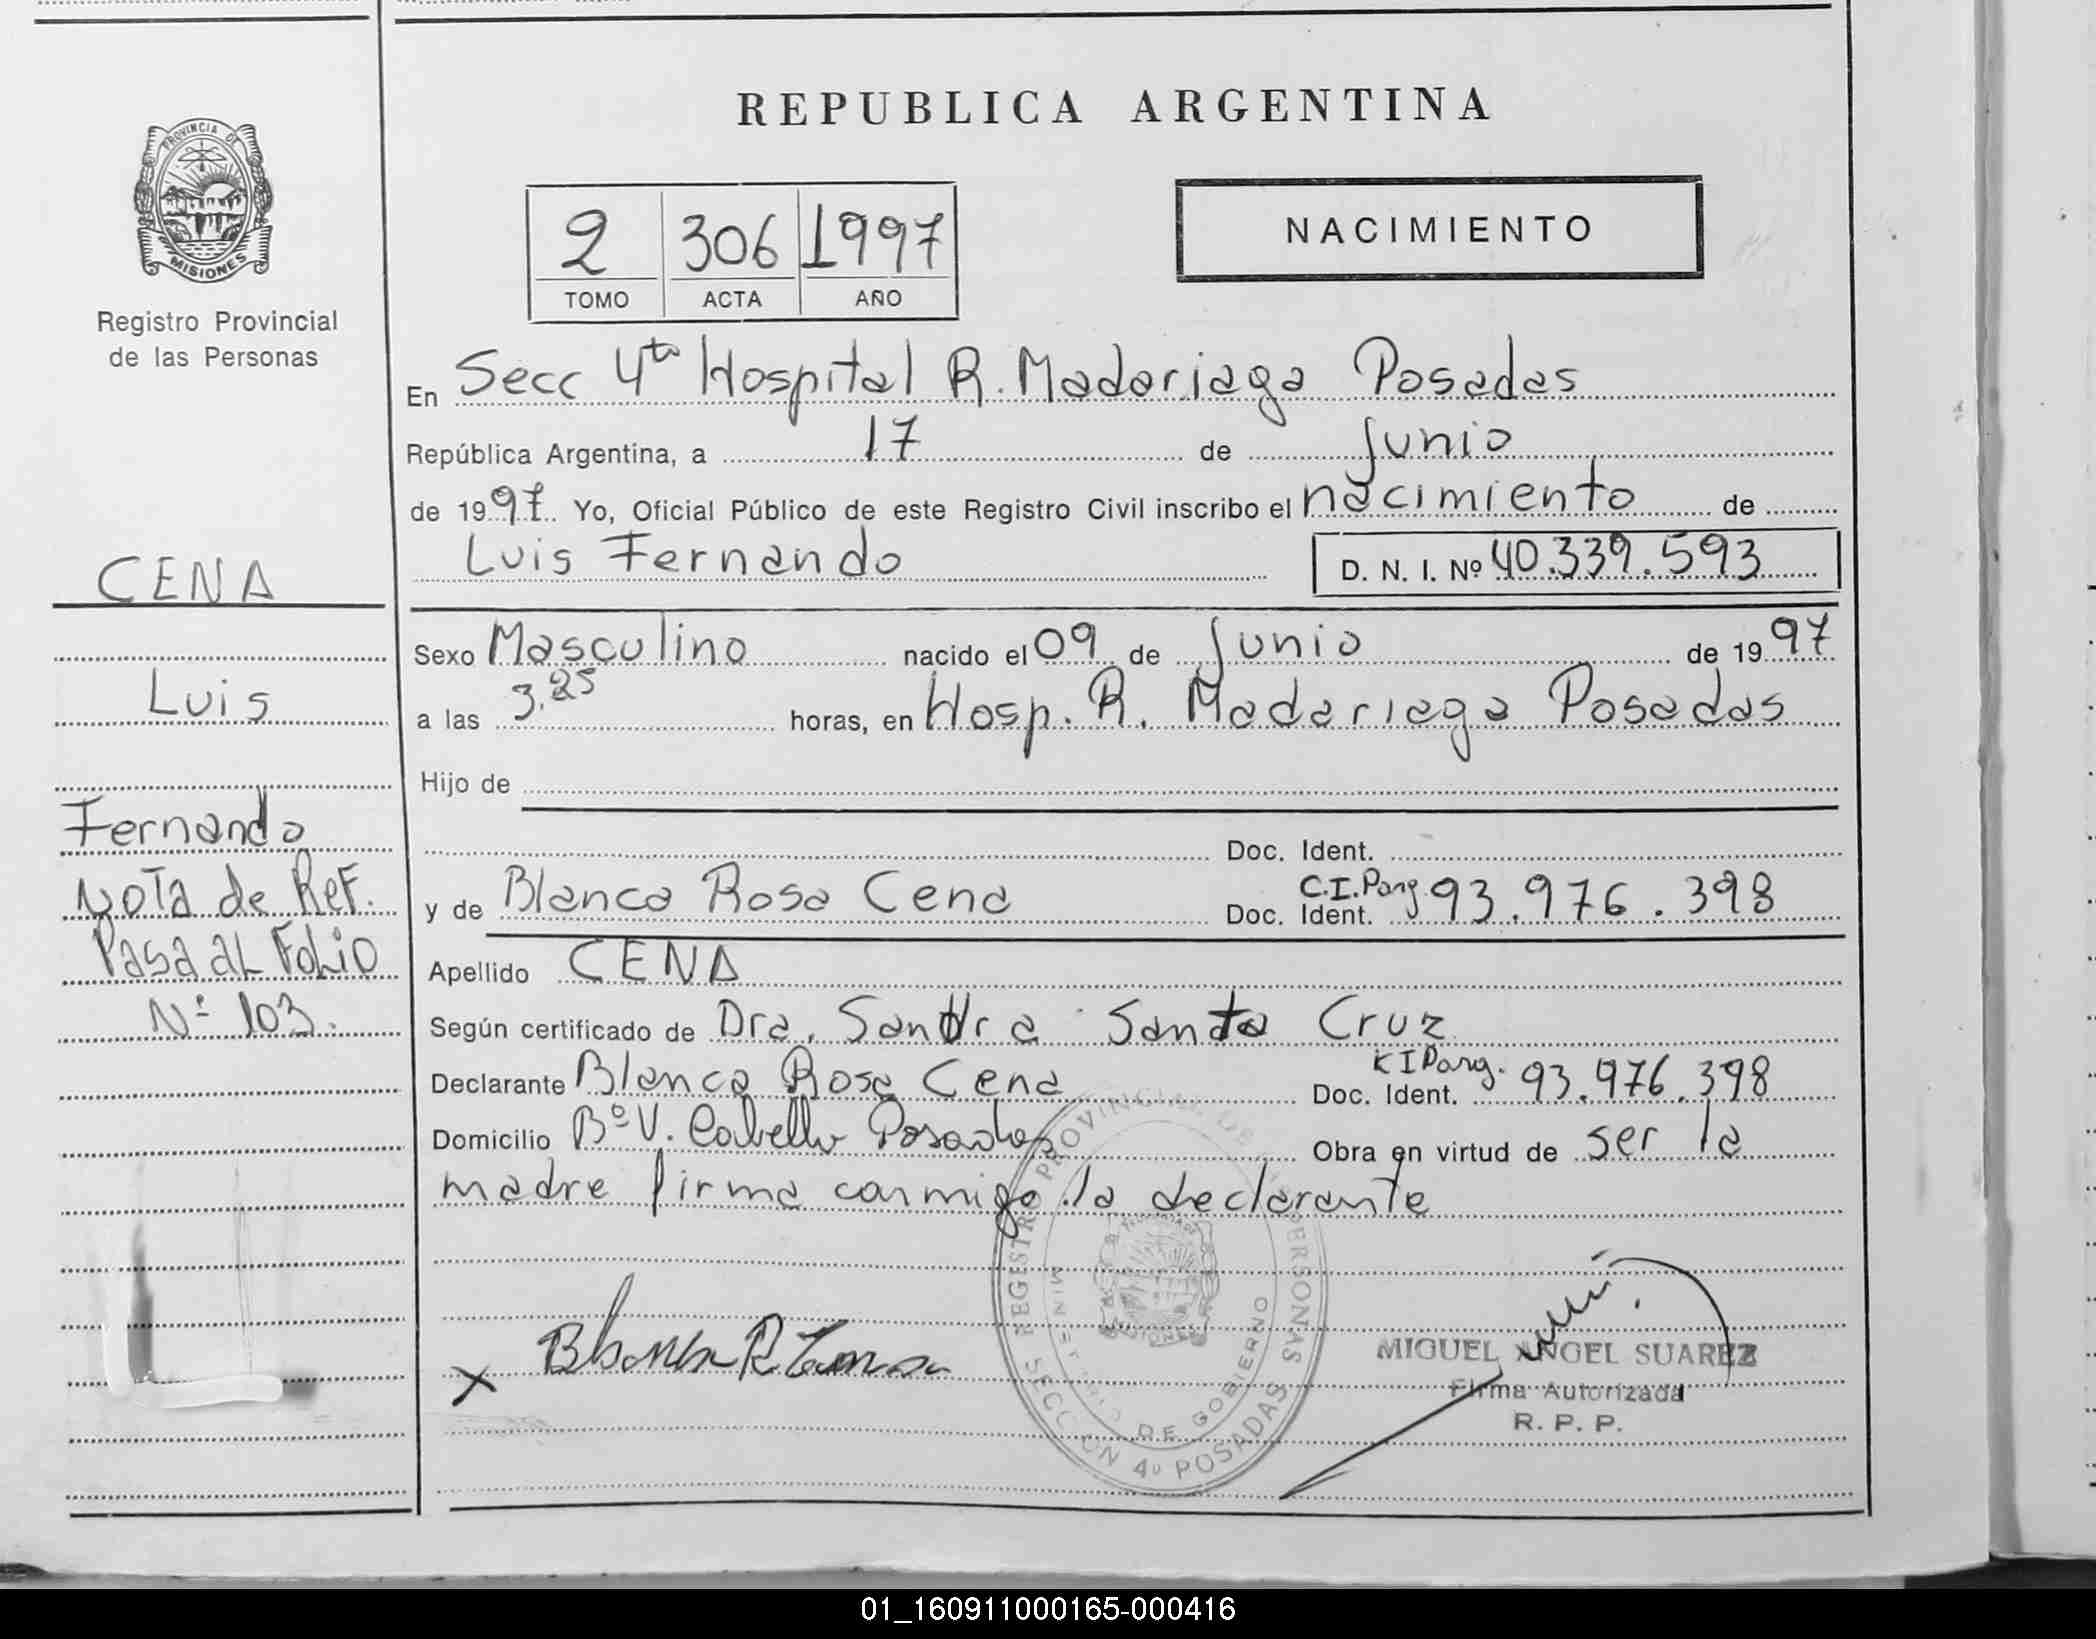 REPUBLICA ARGENTINA
PROVINCIA DE
MISIONES
Registro Provincial
de las Personas
2 306 1997
TOMO ACTA AÑO
NACIMIENTO
En Secc 4ta Hospital R. Madariaga Posadas
República Argentina, a 17 de Junio
de 1997. Yo, Oficial Público de este Registro Civil inscribo el nacimiento de
Luis Fernando D. N. I. Nº 40.339.593
CENA
Luis
Fernando
Nota de Ref.
Pasa al Folio
Nº 103.
Sexo Masculino nacido el 09 de Junio de 1997
a las 3,25 horas, en Hosp. R. Madariaga Posadas
Hijo de
Doc. Ident.
y de Blanca Rosa Cena Doc. Ident. C.I.Parg. 93.976.398
Apellido CENA
Según certificado de Dra. Sandra Santa Cruz
Declarante Blanca Rosa Cena Doc. Ident. 93.976.398
Domicilio Bº V. Cabello Posadas Obra en virtud de ser la
madre firma conmigo la declarante
REGISTRO PROVINCIAL DE LAS PERSONAS
MINISTERIO DE GOBIERNO
SECCION 4º POSADAS
X Blanca R
MIGUEL ANGEL SUAREZ
Firma Autorizada
R. P. P.
01_160911000165-000416